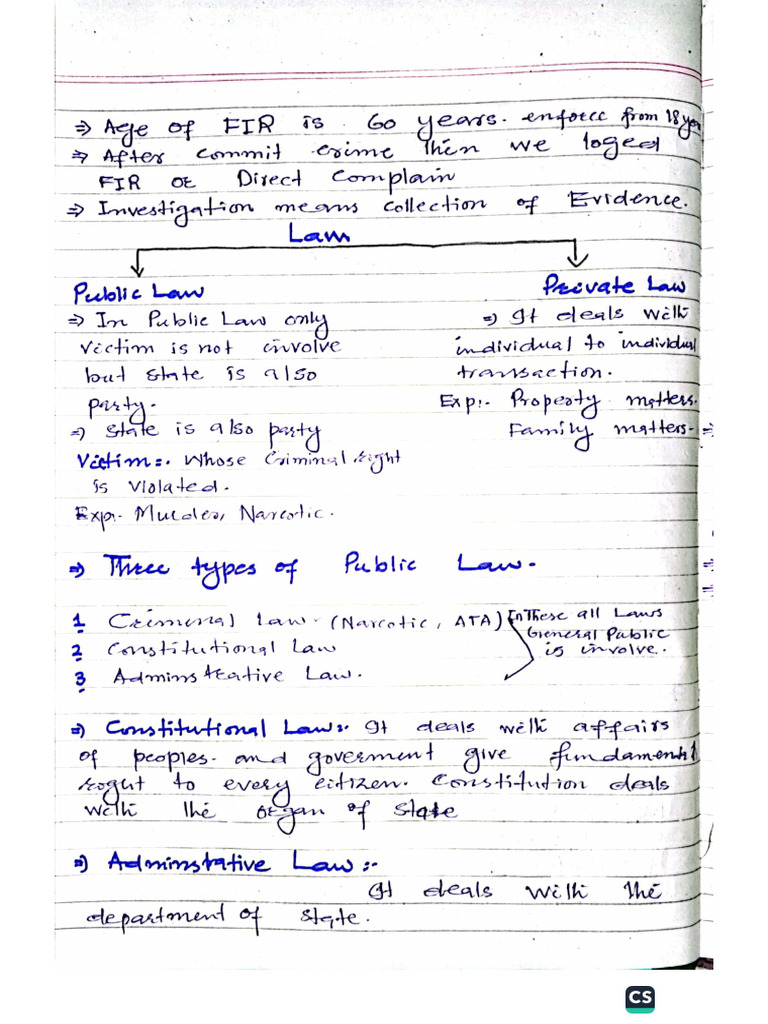 ⇒ Age of FIR is 60 years. enforce from 18 year
⇒ After commit crime then we loged
FIR or Direct Complain
⇒ Investigation means collection of Evidence.
Law
Public Law
⇒ In Public Law only
victim is not involve
but state is also
party.
⇒ State is also party
Victim:- Whose Criminal right
is violated.
Exp:- Murder, Narcotic.
Private Law
⇒ It deals with
individual to individual
transaction.
Exp:- Property matters.
Family matters.
⇒ Three types of Public Law.
1 Criminal Law. (Narcotic, ATA) In These all Laws
General Public
is involve.
2 Constitutional Law
3 Adminstrative Law.
⇒ Constitutional Law:- It deals with affairs
of peoples. and goverment give fundamental
roght to every citizen. Constitution deals
with the organ of state
⇒ Adminstative Law:-
It deals with the
department of state.
CS